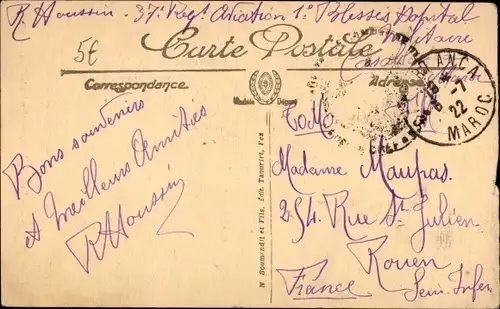 R. Houssin - 37e Regt Aviation 1e Blessés Hôpital
Militaire
5€
Carte Postale
Correspondance
Adresse
Modèle Déposé
ANCA
-7
22
MAROC
Bons souvenirs
et meilleurs Amitiés
RHoussin
N Boumendil et Fils, Edit. Taourirt, Fez
Madame Maupas.
254 Rue St Julien
Rouen
France Sein. Infer